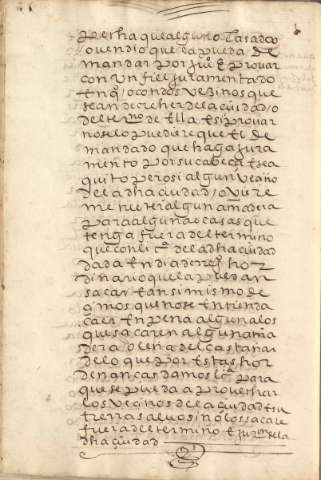 pecha que alguno la sado
o vendio que la pueda de
mandar por juº E provar
con un fiel juramentado
En qº/ o con dos vezinos que
sean de creher de la ciudad/o
del termº de Ella E si provar
no se lo pudiere que El de
mandado que haga jura
mento por su cabeça E sea
quito pero si algun vezino
de la dha ciudad/o quisiere
meter algun amadera
para algunas casas que
tenga fuera del termino
que con liçª de la dha ciudad
dada En dia de hor
dinario que la puedan
sacar E ansi mismo de
çimos que no se Entienda
caer En pena alguna los
que sacaren alguna ma
dera o leña del castañar
de lo que por Estas hor
denanças damos liçª para
que se pueda aprovechar
los vezinos de la ciudad E su
tierra salvo si no lo sacare
fuera del termino E jurºn de la
dha ciudad